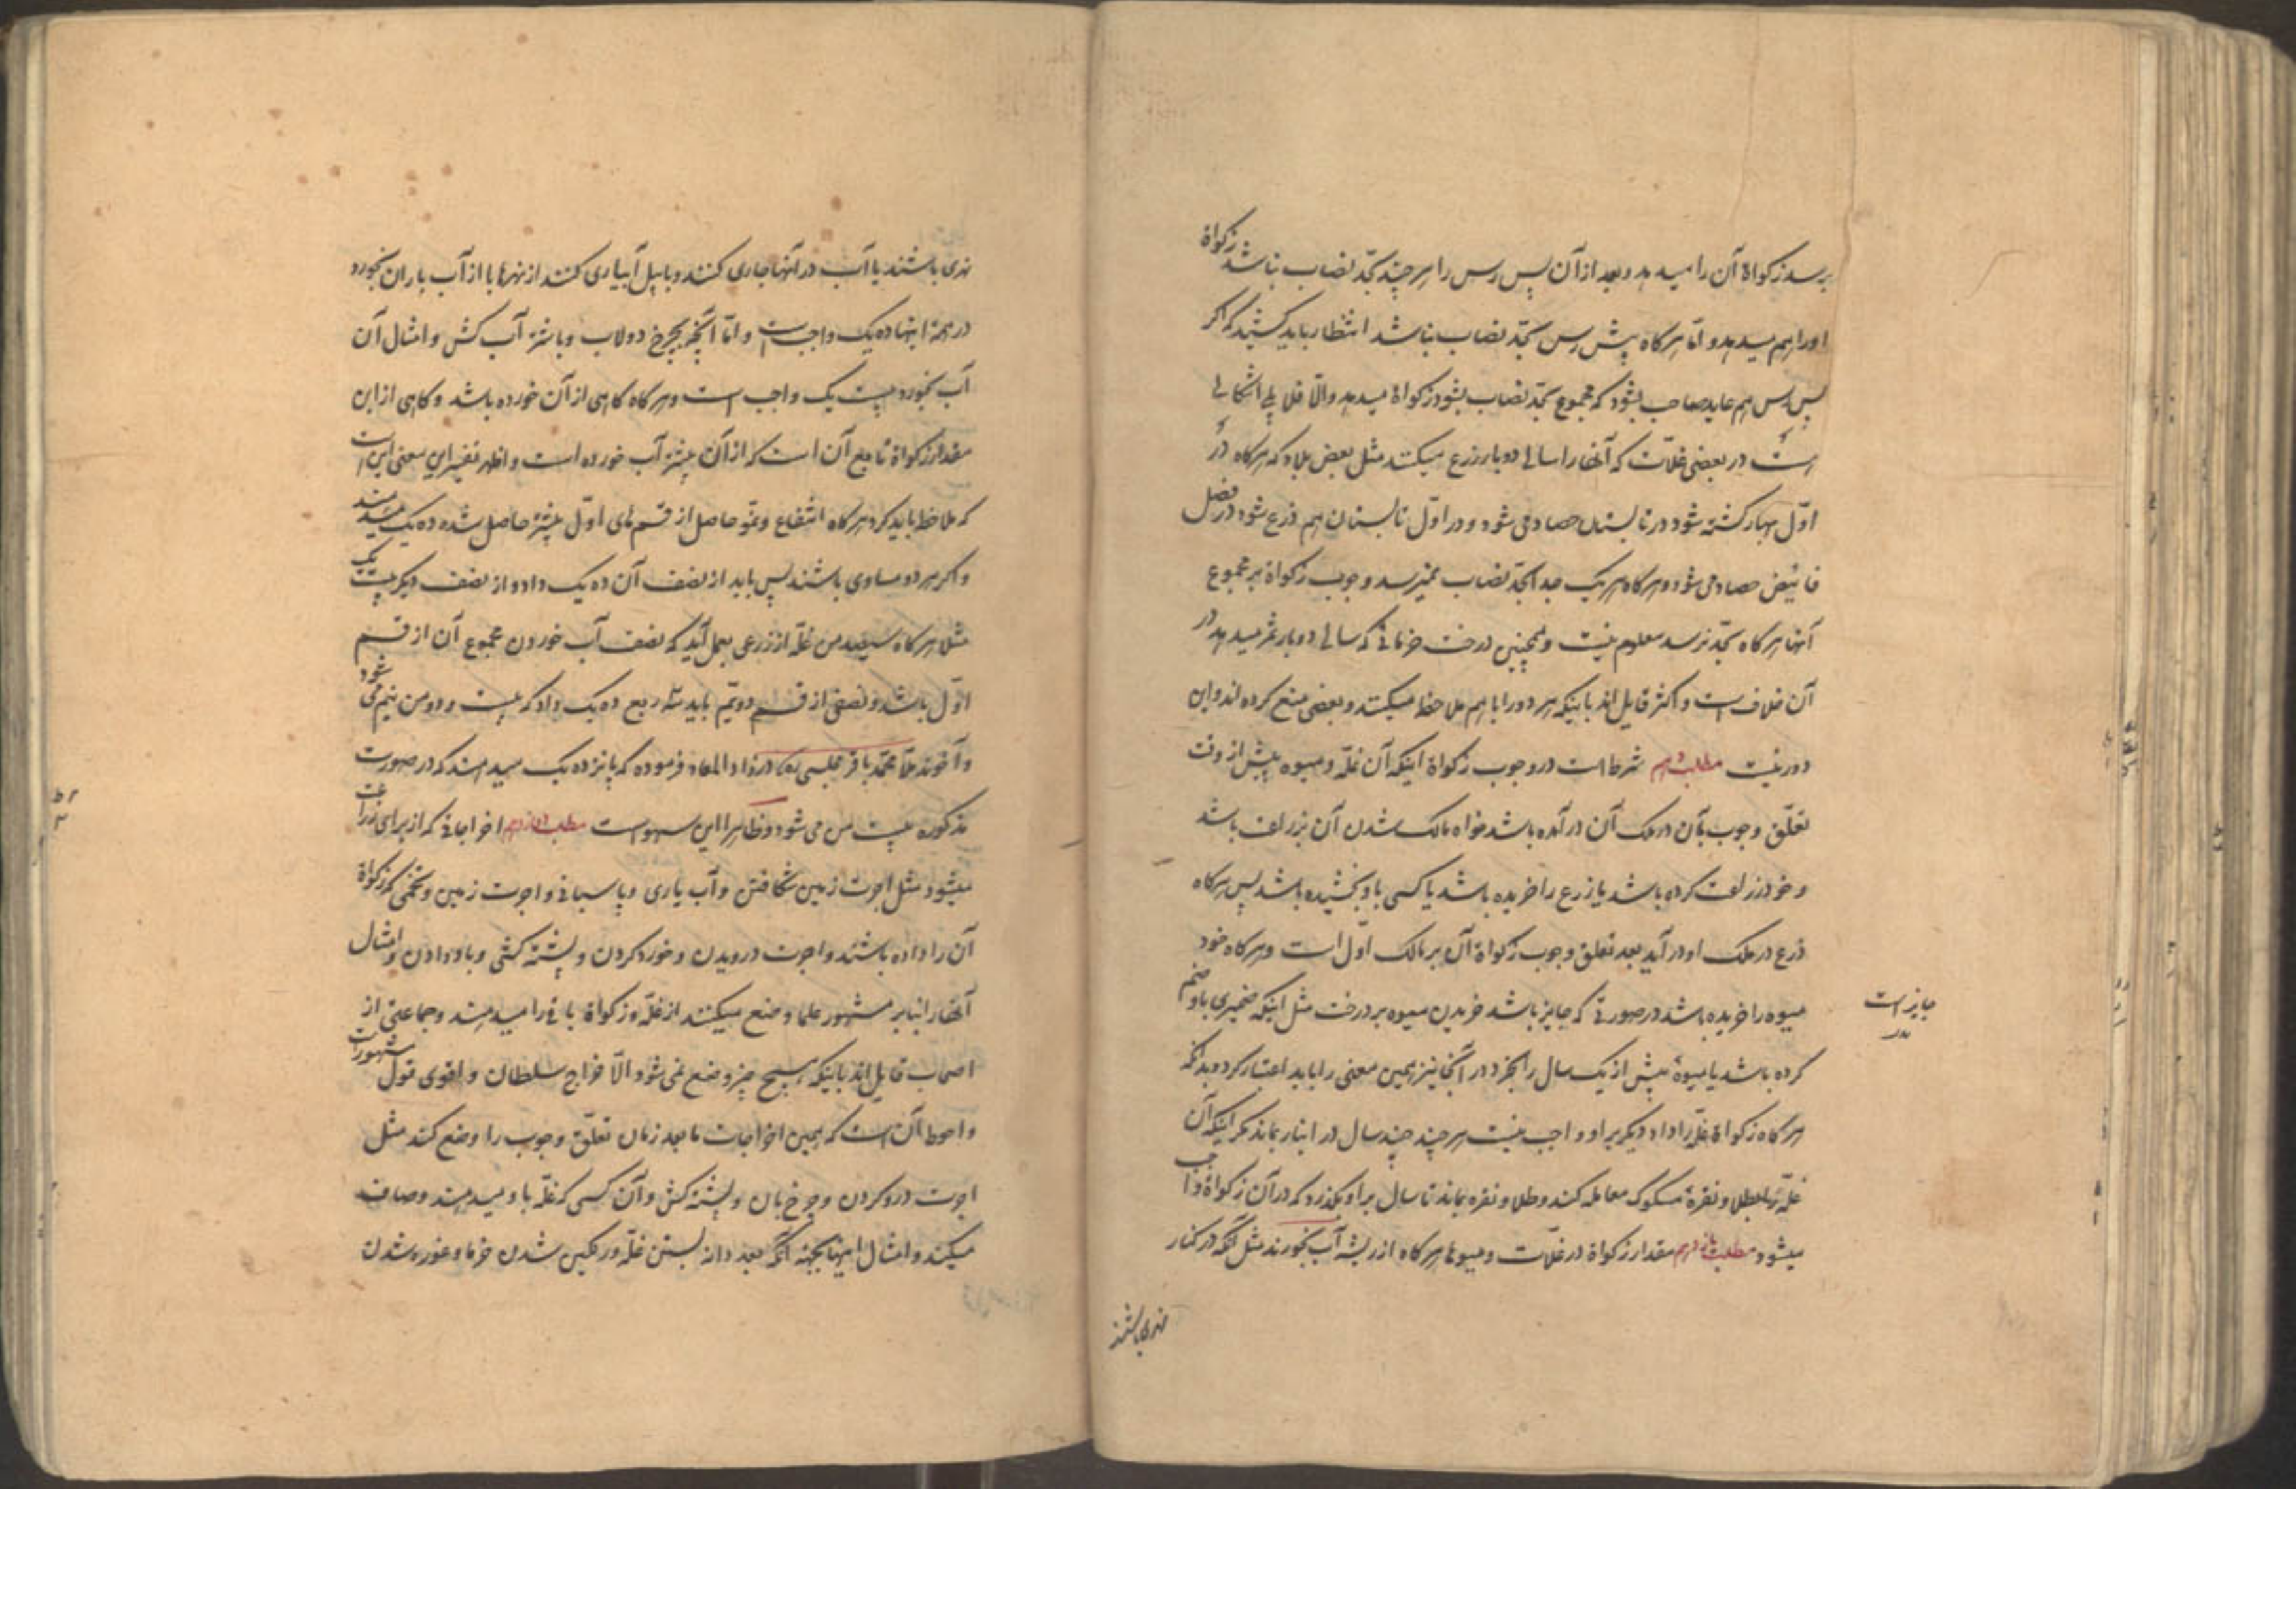 برسد زکواة آن را میدهد و بعد از آن پس رس را هر چند بحدّ نصاب نباشد زکواة
او را هم میدهد و امّا هرگاه پیش رس بحدّ نصاب نباشد انتظار باید کشید که اگر
پس رس هم عاید صاحب بشود که مجموع بحدّ نصاب بشود زکواة میدهد والّا فلا بلی اشکالی
است در بعضی غلّات که آنها را سالی دو بار زرع میکنند مثل بعض بلاد که هرگاه در
اوّل بهار کشته شود در تابستان حصاد می شود و در اوّل تابستان هم زرع شود در فصل
حصاد می شود و هرگاه هر یک جدا بحدّ نصاب نمیرسد وجوب زکواة بر مجموع
آنها هرگاه بحدّ برسد معلوم نیست و همچنین درخت خرمائی که سالی دو بار ثمر میدهد در
آن خلاف است و اکثر قایل اند باینکه هر دو را با هم ملاحظه میکنند و بعضی منع کرده اند و این
دور نیست مطلب دهم شرط است در وجوب زکواة اینکه آن غلّه و میوه پیش از وقت
تعلّق وجوب بآن در ملک آن در آمده باشد خواه مالک شدن آن بزراعت باشد
و خود زراعت کرده باشد یا زرع را خریده باشد یا کسی باو بخشیده باشد پس هرگاه
زرع در ملک او در آید بعد تعلق وجوب زکواة آن بر مالک اوّل است و هرگاه خود
میوه را خریده باشد در صورتی که جایز باشد خریدن میوه بر درخت مثل اینکه ضمیری باو ضم
جایز است
کرده باشد یا میوهٔ بیش از یک سال را بخرد در آنجا نیز همین معنی را باید اعتبار کرد و بدانکه
هرگاه زکواة غلّه را داد دیگر بر او واجب نیست هر چند چند سال در انبار بماند مگر اینکه آن
غلّه را بطلا و نقرهٔ مسکوک معامله کند و طلا و نقره بماند تا سال بر او بگذرد که در آن زکواة واجب
میشود مطلب یازدهم مقدار زکواة در غلّات و میوها هرگاه از ریشه آب بخورند مثل آنکه در کنار
نهری باشند
نهری باشند یا آب در آنها جاری کنند و با بیل آبیاری کنند از نهرها یا از آب باران بخورد
در همهٔ اینها ده یک واجب است و امّا آنچه بچرخ دولاب و با شتر آب کش و امثال آن
آب بخورد بیست یک واجب است و هرگاه گاهی از آن خورده باشد و گاهی از این
مقدار زکواة تابع آن است که از آن بیشتر آب خورده است و اظهر تفسیر این معنی این است
که ملاحظه باید کرد هرگاه انتفاع و نموّ حاصل از قسم های اوّل بیشتر حاصل شده ده یک میدهند
و اگر هر دو مساوی باشند پس باید از نصف آن ده یک داد و از نصف دیگر بیست یک
مثلا هرگاه سیصد من غلّه از زرعی بعمل آید که نصف آب خوردن مجموع آن از قسم
اوّل باشد و نصفی از قسم دویّم باید سه ربع ده یک داد که بیست و دو من نیم می شود
و آخوند ملّا محمّد باقر مجلسی ره در زاد المعاد فرموده که پانزده یک میدهند که در صورت
مذکوره بیست من می شود و ظاهرا این سهو است مطلب دوازدهم اخراجاتی که از برای زراعت
میشود مثل اجرت زمین شکافتن و آب یاری و پاسبانی و اجرت زمین و تخمی که زکواة
آن را داده باشند و اجرت درویدن و خورد کردن و پشته کشی و باد دادن و امثال
آنها را بنا بر مشهور علما وضع میکنند از غلّه و زکواة باقی را میدهند و جماعتی از
اصحاب قایل اند باینکه هیچ چیز وضع نمی شود الّا خراج سلطان و اقوی قول مشهور است
و احوط آن است که همین اخراجات ما بعد زمان تعلّق وجوب را وضع کند مثل
اجرت درو کردن و چرخ بان و پشته کش و آن کسی که غلّه باو میدهند و صاف
میکند و امثال اینها بجهة آنکه بعد دانه بستن غلّه و رنگین شدن خرما و غوره شدن